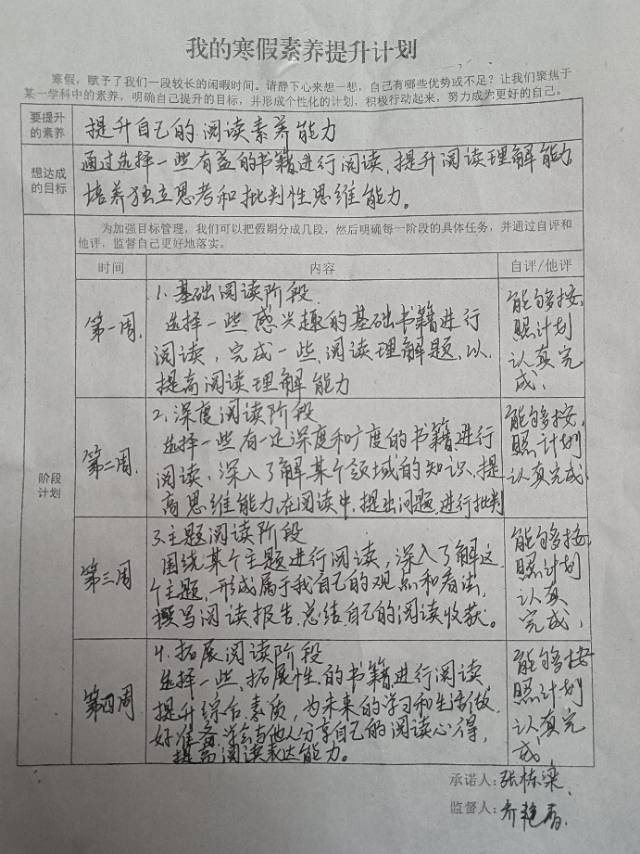 我的寒假素养提升计划
寒假，赋予了我们一段较长的闲暇时间。请静下心来想一想，自己有哪些优势或不足？让我们聚焦于
某一学科中的素养，明确自己提升的目标，并形成个性化的计划，积极行动起来，努力成为更好的自己。
要提升
的素养
提升自己的阅读素养能力
想达成
的目标
通过选择一些有益的书籍进行阅读，提升阅读理解能力
培养独立思考和批判性思维能力。
阶段
计划
为加强目标管理，我们可以把假期分成几段，然后明确每一阶段的具体任务，并通过自评和
他评，监督自己更好地落实。
时间
内容
自评/他评
第一周.
1.基础阅读阶段.
选择一些感兴趣的基础书籍进行
阅读，完成一些阅读理解题，以
提高阅读理解能力
能够按
照计划
认真完
成、
第二周.
2.深度阅读阶段
选择一些有一定深度和广度的书籍进行
阅读、深入了解某个领域的知识、提
高思维能力，在阅读中，提出问题，进行批判
能够按
照计划
认真完成
第三周
3.主题阅读阶段
围绕某个主题进行阅读，深入了解这
个主题，形成属于我自己的观点和看法，
撰写阅读报告，总结自己的阅读收获。
能够按
照计划
认真
完成，
第四周
4.拓展阅读阶段
选择一些拓展性的书籍进行阅读，
提升综合素质，为未来的学习和生活做
好准备，学会与他人分享自己的阅读心得，
提高阅读表达能力。
能够按
照计划
认真完
成，
承诺人：张栋梁、
监督人：乔艳